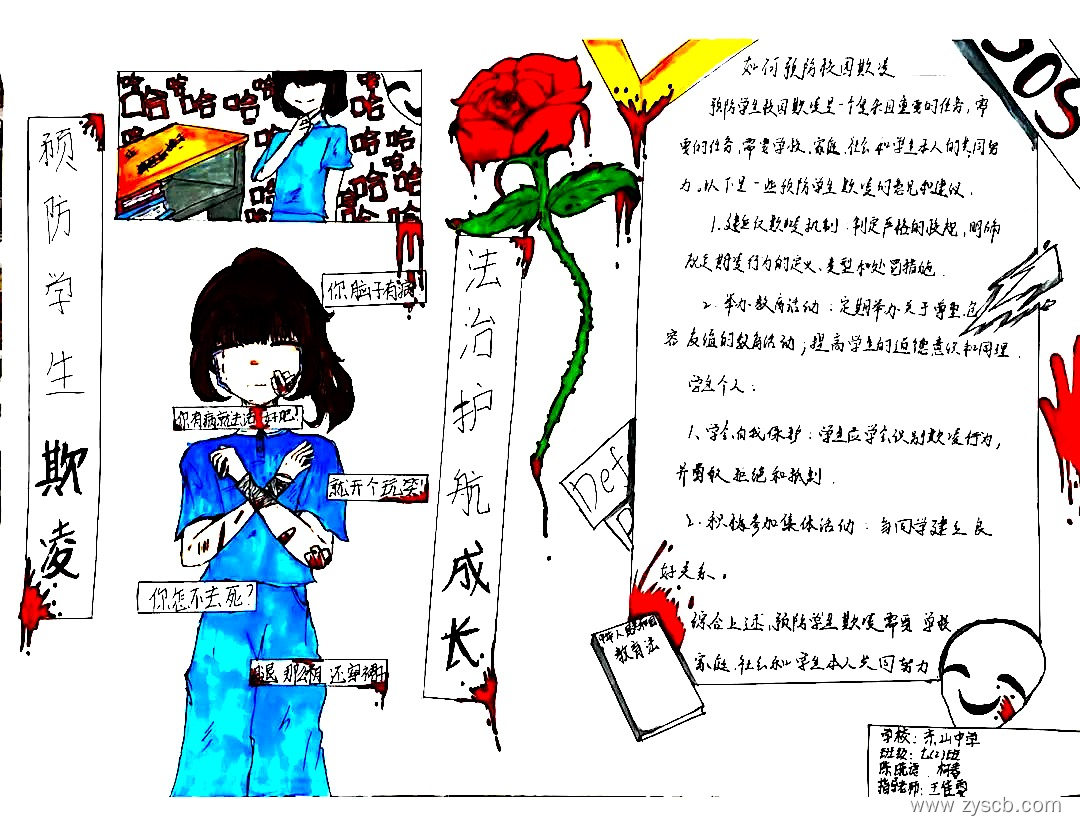 预防学生欺凌
哈哈哈哈哈哈哈哈哈哈哈
你脑子有病
就开个玩笑!
你怎么不去死?
法治护航成长
SOS
Def
如何预防校园欺凌
预防学生校园欺凌是一个复杂且重要的任务,需
要的任务,需要学校、家庭、社会和学生本人的共同努
力。以下是一些预防学生欺凌的意见和建议。
1.建立反欺凌机制:制定严格的校规,明确
规定欺凌行为的定义、类型和处罚措施.
2.举办教育活动:定期举办关于尊重、包
容、友谊的教育活动;提高学生的道德意识和同理
学生个人:
1、学会自我保护:学生应学会识别欺凌行为,
并勇敢拒绝和抵制.
2.积极参加集体活动:与同学建立良
好关系。
综合上述,预防学生欺凌需要 学校
家庭、社会和学生本人共同努力
中华人民共和国
教育法
学校:赤山中学
班级:七(2)班
指导老师:王佳雯
www.zyscb.com